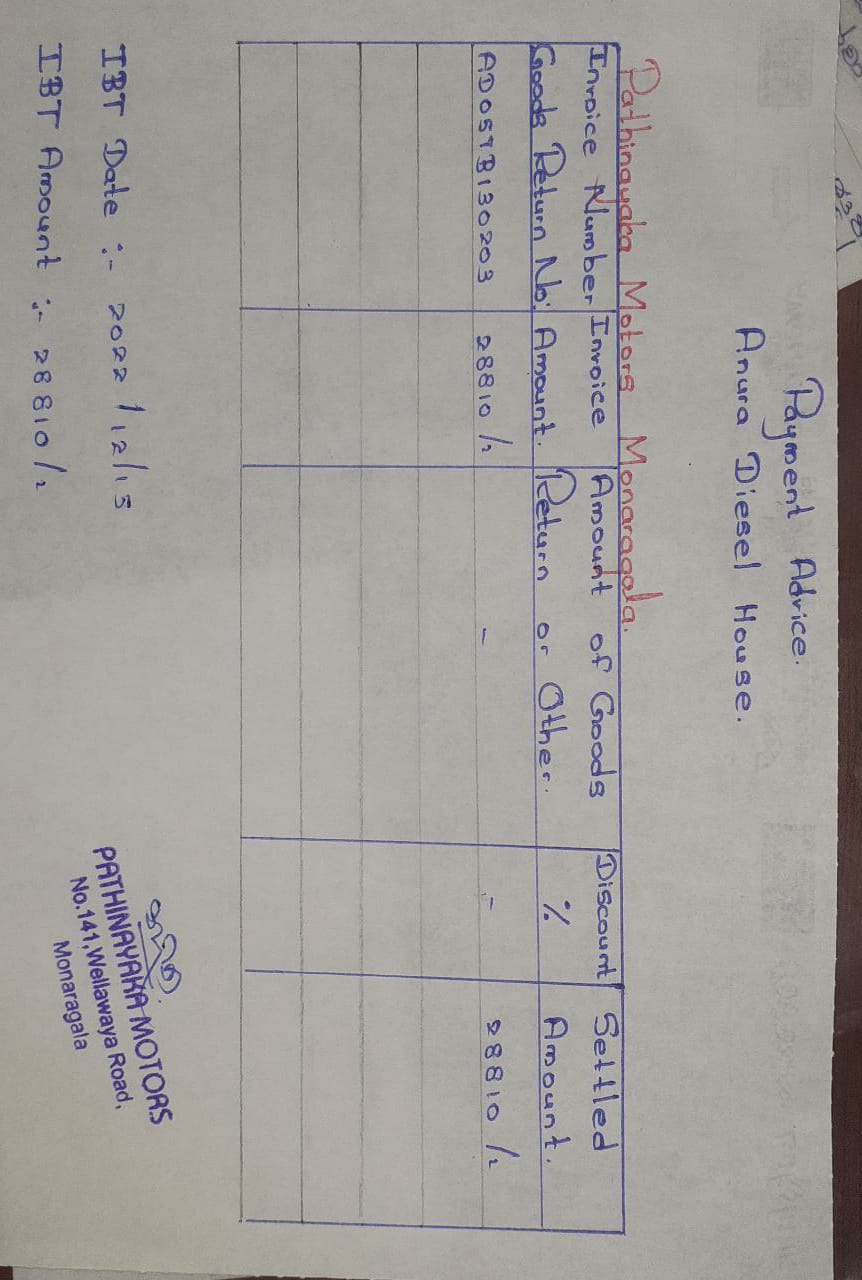 Payment Advice.
Anura Diesel House.
Pathinayaka Motors Monaragala.
Invoice Number Invoice Amount of Goods Discount Settled
Goods Return No: Amount. Return or Other. % Amount.
AD05TB130203 28810/2 - - 28810/2
IBT Date :- 2022/12/13
IBT Amount :- 28810/2
PATHINAYAKA MOTORS
No.141,Wellawaya Road,
Monaragala